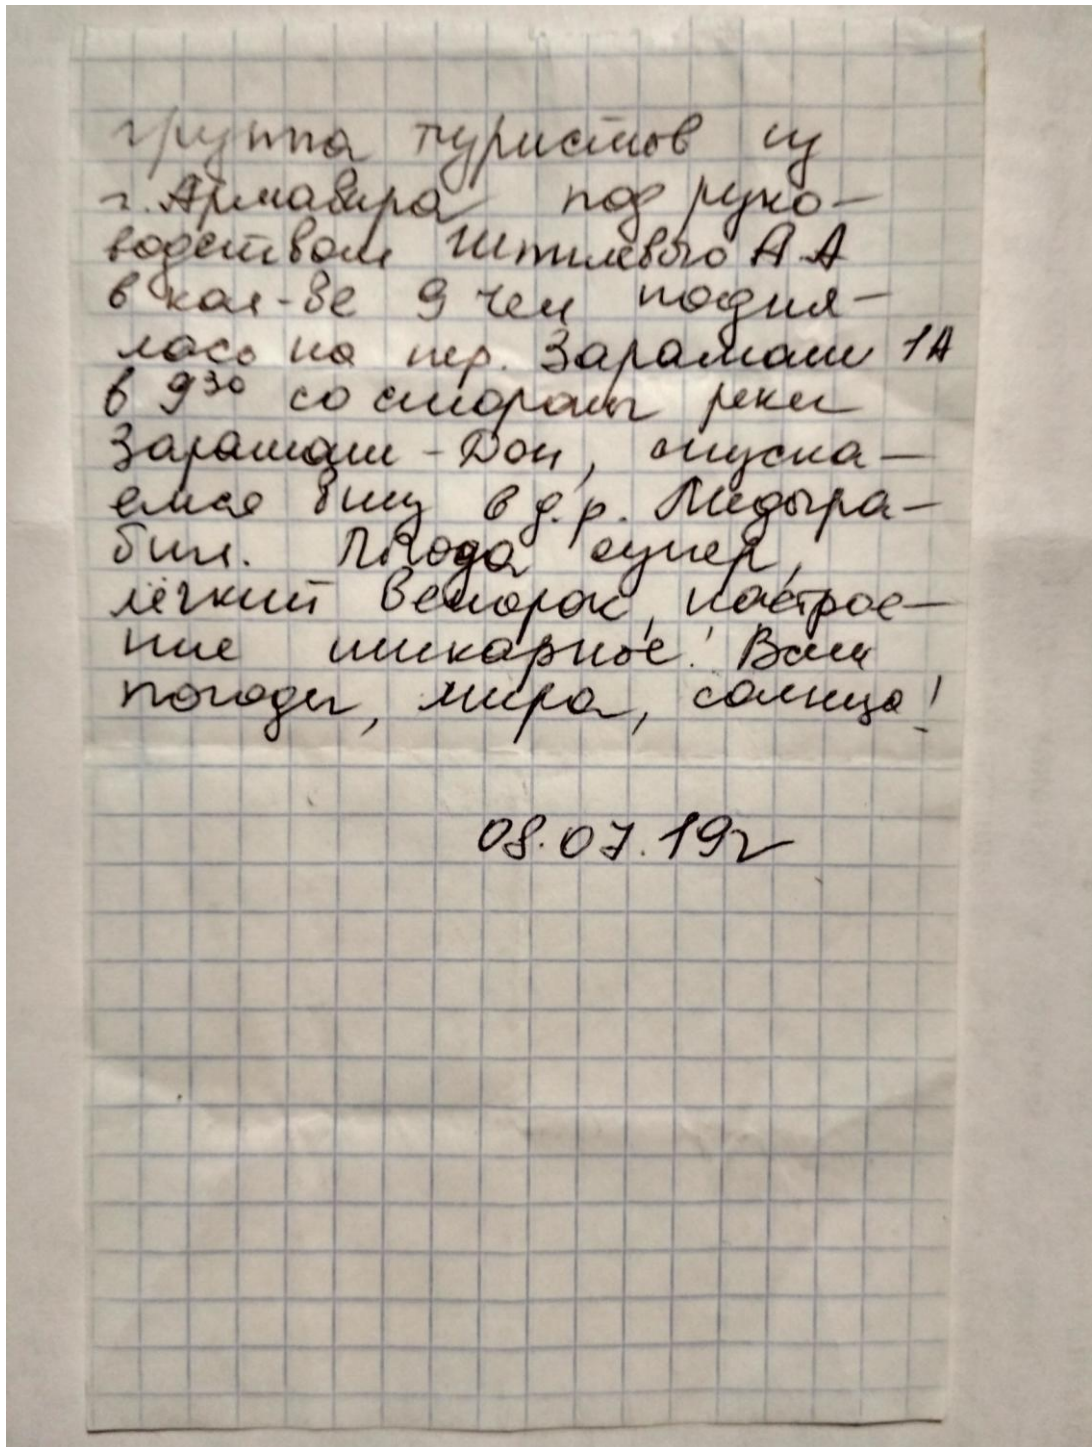 группа туристов из
г. Армавира под руко-
водством Штилевого А.А
в кол-ве 9 чел подня-
лась на пер. Зарамаш 1А
в 9³⁰ со стороны реки
Зарамаш-Дон, спуска-
емся вниз в д.р.
Погода супер,
лёгкий ветерок, настрое-
ние шикарное! Вам
погоды, мира, солнца!
08.07.19г